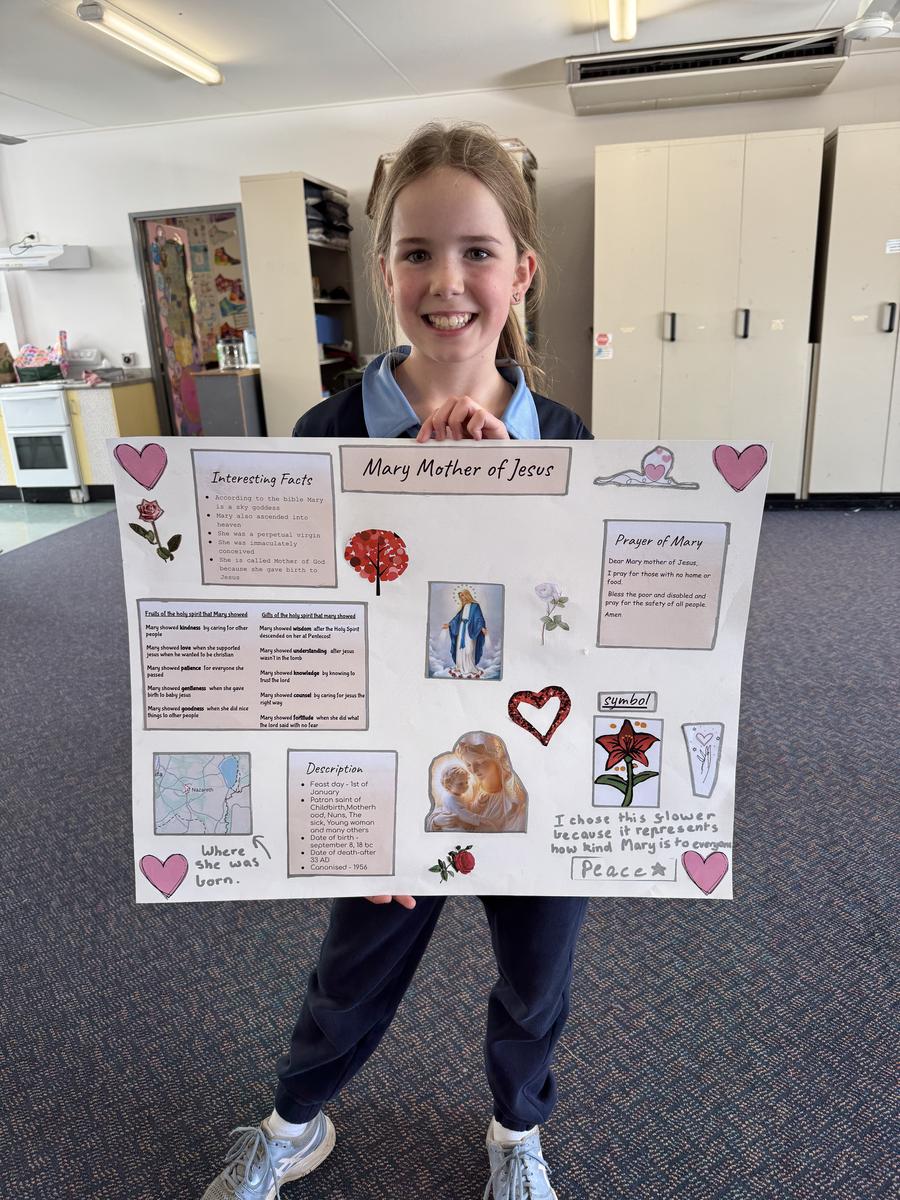 Mary Mother of Jesus
Interesting Facts
According to the bible Mary
is a sky goddess
Mary also ascended into
heaven
She was a perpetual virgin
She was immaculately
conceived
She is called Mother of God
because she gave birth to
Jesus
Prayer of Mary
Dear Mary mother of Jesus,
I pray for those with no home or
food.
Bless the poor and disabled and
pray for the safety of all people.
Amen
Fruits of the holy spirit that Mary showed
Mary showed kindness by caring for other
people
Mary showed love when she supported
jesus when he wanted to be christian
Mary showed patience for everyone she
passed
Mary showed gentleness when she gave
birth to baby jesus
Mary showed goodness when she did nice
things to other people
Gifts of the holy spirit that mary showed
Mary showed wisdom after the Holy Spirit
descended on her at Pentecost
Mary showed understanding after jesus
wasn't in the tomb
Mary showed knowledge by knowing to
trust the lord
Mary showed counsel by caring for jesus the
right way
Mary showed fortitude when she did what
the lord said with no fear
symbol
Nazareth
Where
she was
born.
Description
Feast day - 1st of
January
Patron saint of
Childbirth,Motherh
ood, Nuns, The
sick, Young woman
and many others
Date of birth -
september 8, 18 bc
Date of death-after
33 AD
Canonised - 1956
I chose this flower
because it represents
how kind Mary is to everyone
Peace